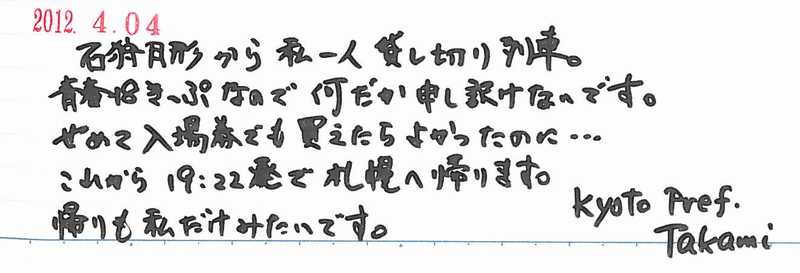 2012. 4. 04
石狩月形から私一人貸し切り列車。
青春18きっぷなので何だか申し訳けないです。
せめて入場券でも買えたらよかったのに…
これから19:22発で札幌へ帰ります。
帰りも私だけみたいです。
Kyoto Pref.
Takami